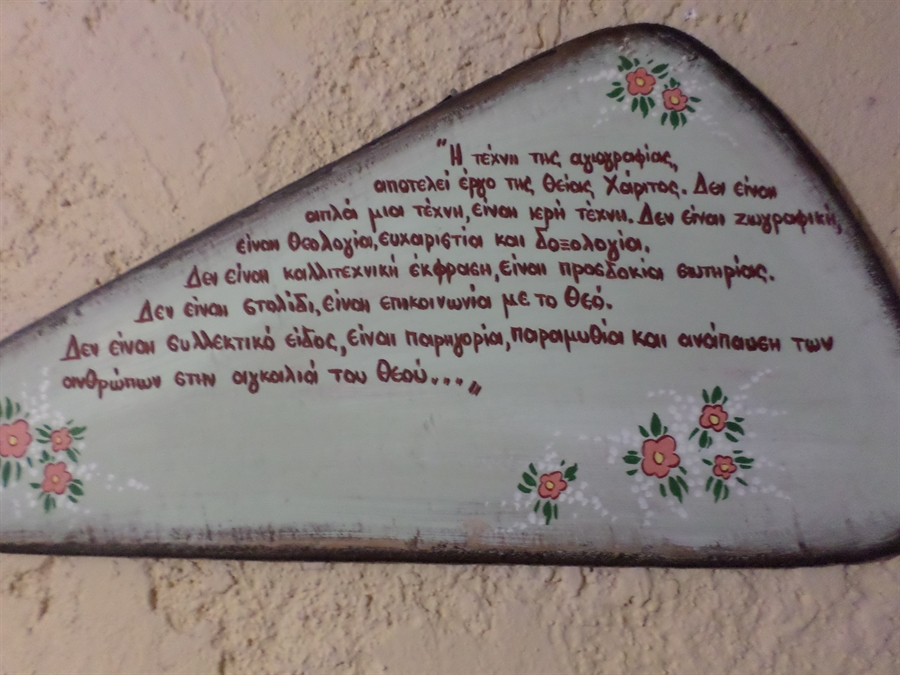 "Η τέχνη της αγιογραφίας,
αποτελεί έργο της θείας Χάριτος. Δεν είναι
απλά μια τέχνη, είναι ιερή τέχνη. Δεν είναι ζωγραφική,
είναι θεολογία, ευχαριστία και δοξολογία.
Δεν είναι καλλιτεχνική έκφραση, είναι προσδοκία σωτηρίας.
Δεν είναι στολίδι, είναι επικοινωνία με το Θεό.
Δεν είναι συλλεκτικό είδος, είναι παρηγορία, παραμυθία και ανάπαυση των
ανθρώπων στην αγκαλιά του Θεού..."